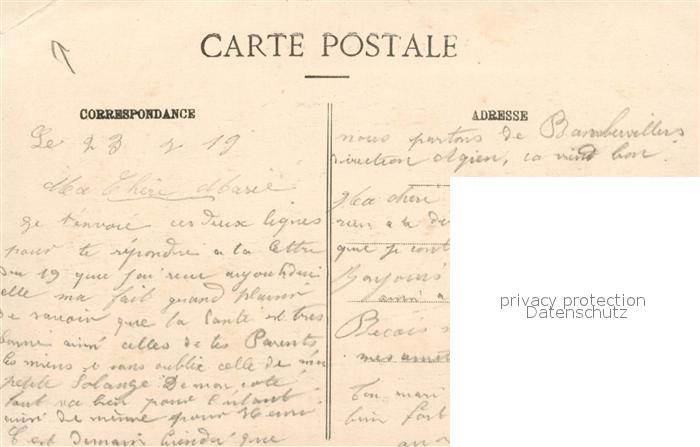 CARTE POSTALE
CORRESPONDANCE
ADRESSE
Le 23 2 19
Ma Chère Marie
Je t'envoie ces deux lignes
pour te répondre a la lettre
du 19 que j'ai reçue aujourd'hui
elle ma fait grand plaisir
de savoir que la santé est tres
bonne ainsi celles de tes Parents
les miens et sans oublié celle de ma
petite Solange De mon coté
tout va bien pour l'instant
ainsi de même pour Henri
C'est demain lundi que
nous partons de Rambervillers
direction Agien, ca vient bon.
Ma chère
rien a te di
que je cont
Toujours
ainsi a
Becois
mes amit
Ton mari
bien fort
privacy protection
Datenschutz